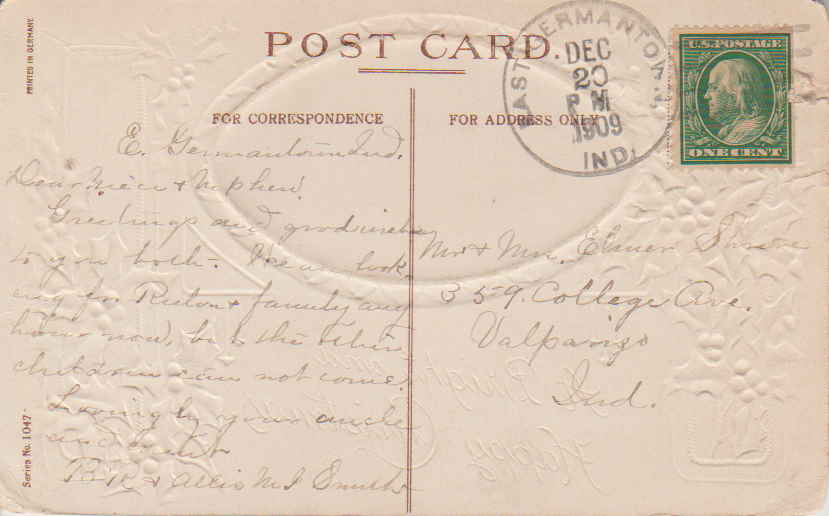 PRINTED IN GERMANY
POST CARD
EAST GERMANTOWN
DEC
20
PM
1909
IND.
U.S. POSTAGE
ONE CENT
FOR CORRESPONDENCE
FOR ADDRESS ONLY
E. Germantown Ind.
Dear Niece & Nephew
Greetings and good wishes
to you both. We are look
ing for & family any
hour now, but the other
children can not come.
Lovingly your uncle
and aunt
& Allie M Smith
Mr & Mrs. Elmer
359. College Ave.
Valparaiso
Ind.
Series No. 1047
Bright and
Happy